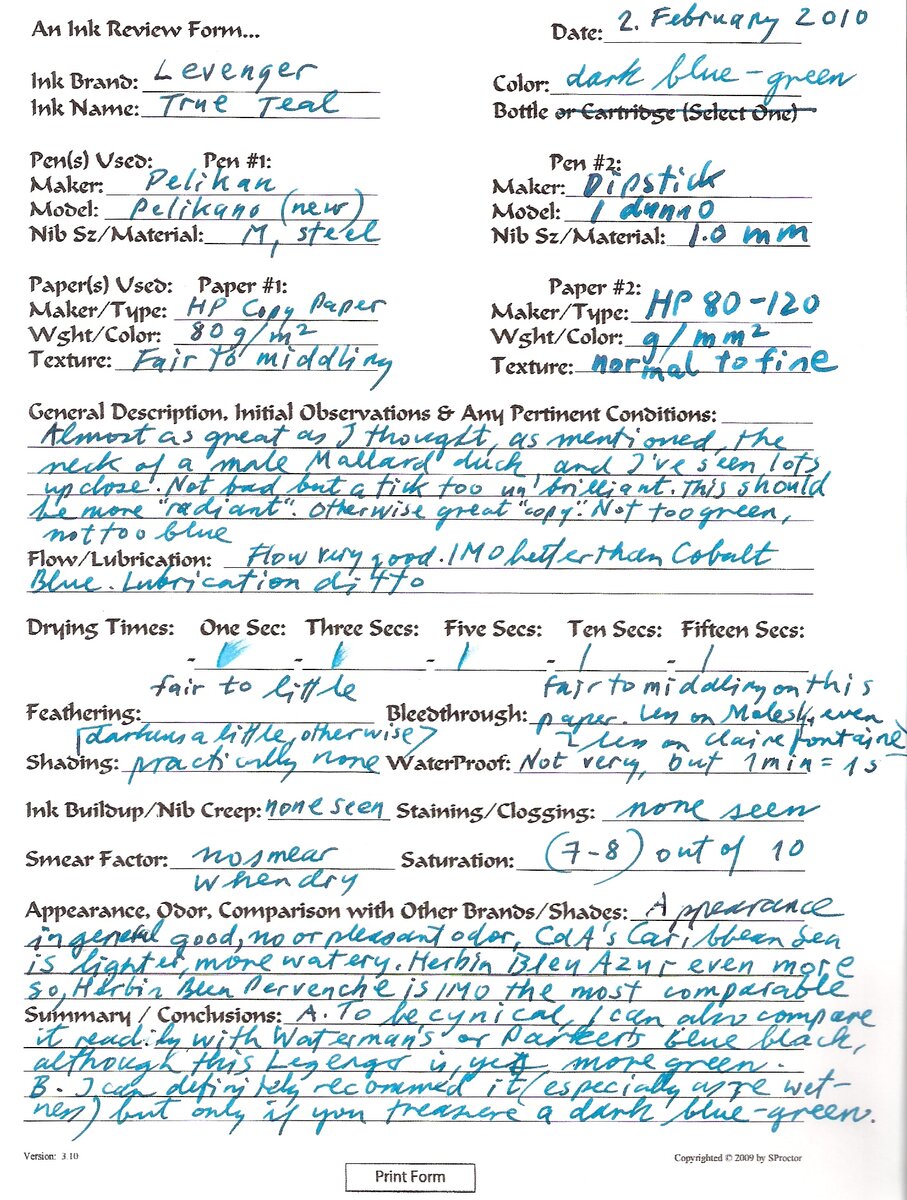 An Ink Review Form... Date: 2. February 2010
Ink Brand: Levenger Color: dark blue-green
Ink Name: True Teal Bottle or Cartridge (Select One)
Pen(s) Used: Pen #1: Pen #2:
Maker: Pelikan Maker: Dipstick
Model: Pelikano (new) Model: I dunno
Nib Sz/Material: M, steel Nib Sz/Material: 1.0 mm
Paper(s) Used: Paper #1: Paper #2:
Maker/Type: HP Copy Paper Maker/Type: HP 80-120
Wght/Color: 80 g/m² Wght/Color: g/mm²
Texture: Fair to middling Texture: normal to fine
General Description, Initial Observations & Any Pertinent Conditions:
Almost as great as I thought, as mentioned, the
neck of a male Mallard duck, and I've seen lots,
up close. Not bad but a tick too un' brilliant. This should
be more "radiant". Otherwise great "copy". Not too green,
not too blue
Flow/Lubrication: Flow very good. IMO better than Cobalt
Blue. Lubrication ditto
Drying Times: One Sec: Three Secs: Five Secs: Ten Secs: Fifteen Secs:
fair to little fair to middling on this
Feathering: Bleedthrough: paper. Less on Moleski, even
darkens a little, otherwise less on clairefontaine
Shading: practically none WaterProof: Not very, but 1 min = 1 s
Ink Buildup/Nib Creep: none seen Staining/Clogging: none seen
Smear Factor: no smear Saturation: (7-8) out of 10
when dry
Appearance, Odor, Comparison with Other Brands/Shades: Appearance
in general good, no or pleasant odor, CdA's Caribbean Sea
is lighter, more watery. Herbin Bleu Azur even more
so, Herbin Bleu Pervenche is IMO the most comparable
Summary / Conclusions: A. To be cynical, I can also compare
it readily with Waterman's or Parker's blue black,
although this Levenger is, yet, more green.
B. I can definitely recommed it (especially as re wet-
ness) but only if you treasure a dark blue-green.
Version: 3.10 Copyrighted © 2009 by SProctor
Print Form